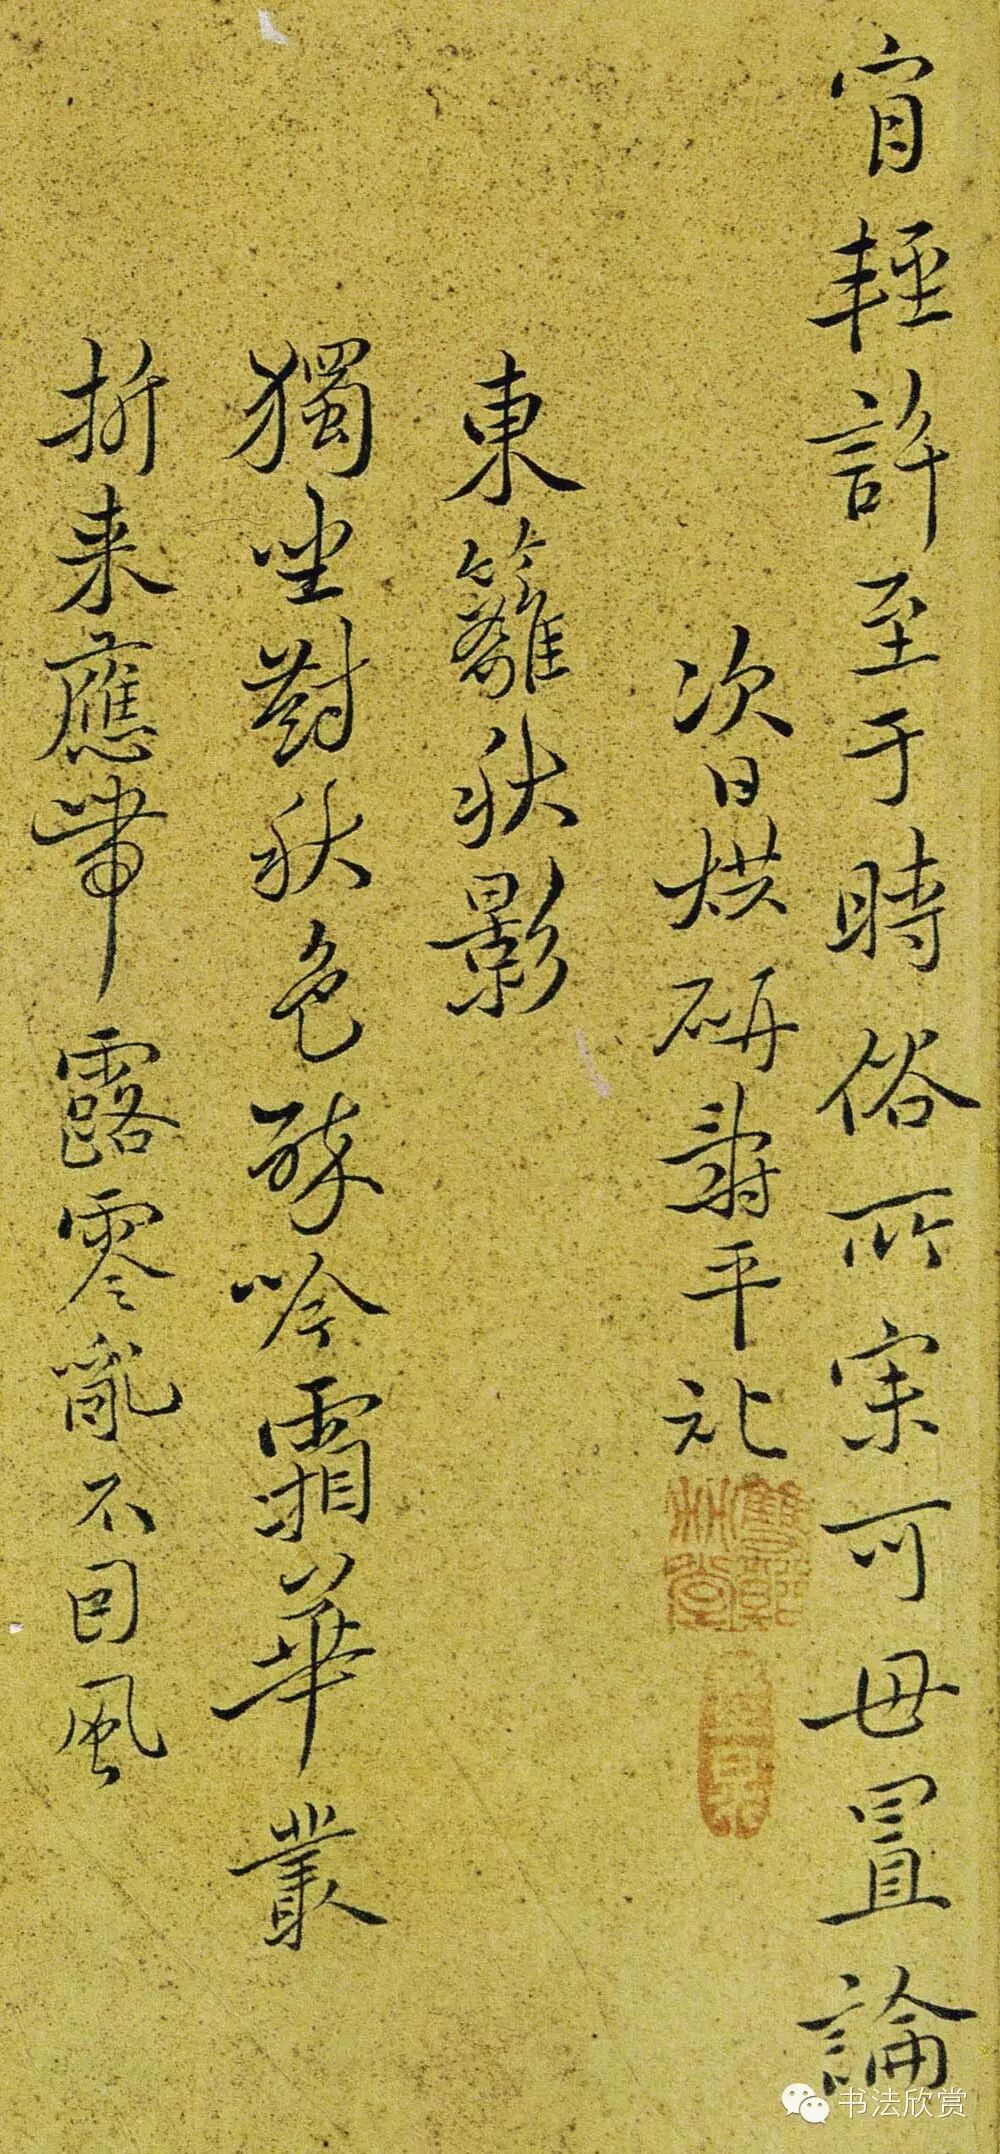 肯輕許至于時俗所宗可毋置論
次日烘研壽平礼
東籬秋影
獨坐對秋色醉吟霜華叢
折来應帶露零亂不因風
书法欣赏